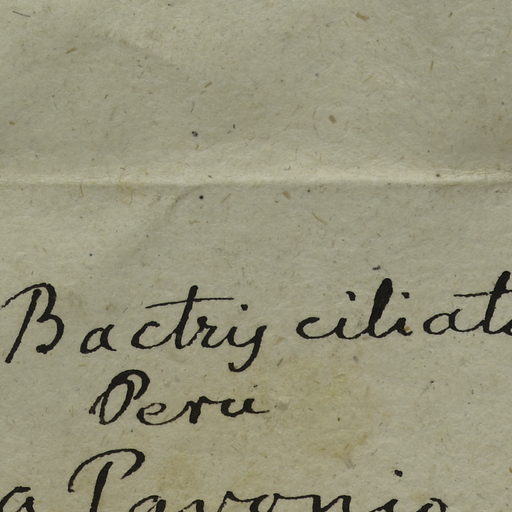 Bactris ciliata
Peru
a Pavonio